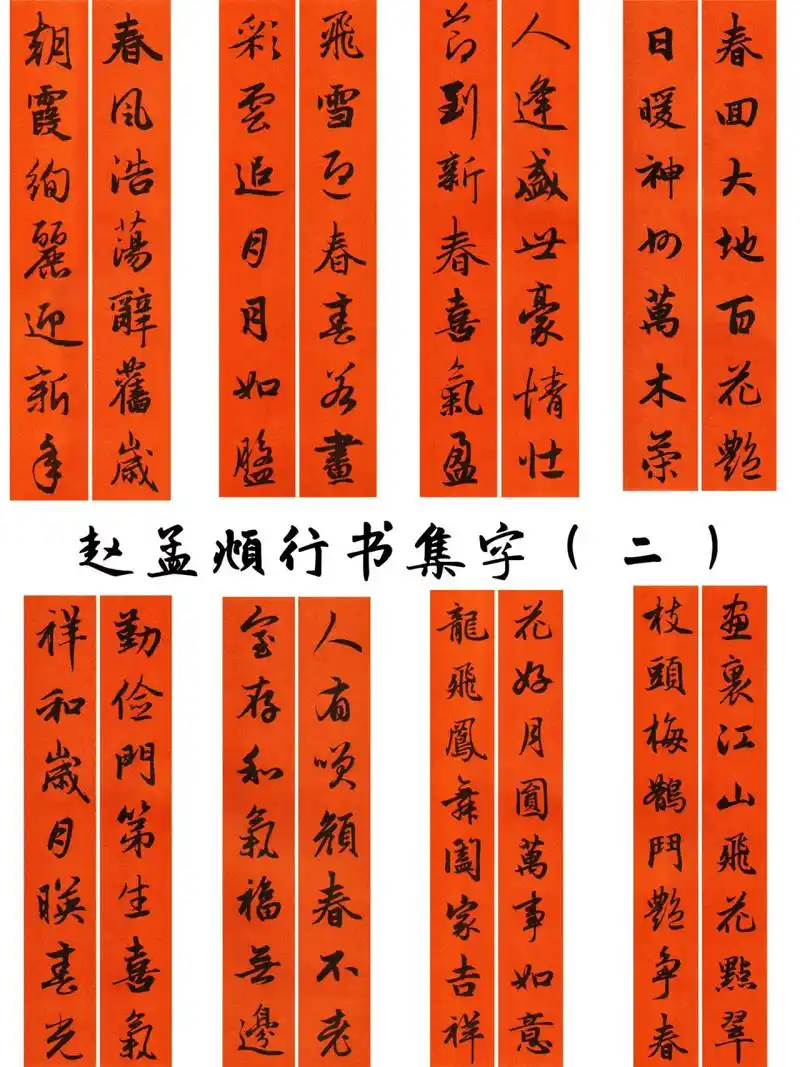 春回大地百花艷
日暖神州萬木榮
人逢盛世豪情壯
節到新春喜氣盈
飛雪迎春春若畫
彩雲追月月如盤
春風浩蕩辭舊歲
朝霞絢麗迎新年
赵孟頫行书集字（二）
畫裏江山飛花點翠
枝頭梅鵲鬥艷爭春
花好月圓萬事如意
龍飛鳳舞闔家吉祥
人有笑顏春不老
室存和氣福無邊
勤儉門第生喜氣
祥和歲月映春光